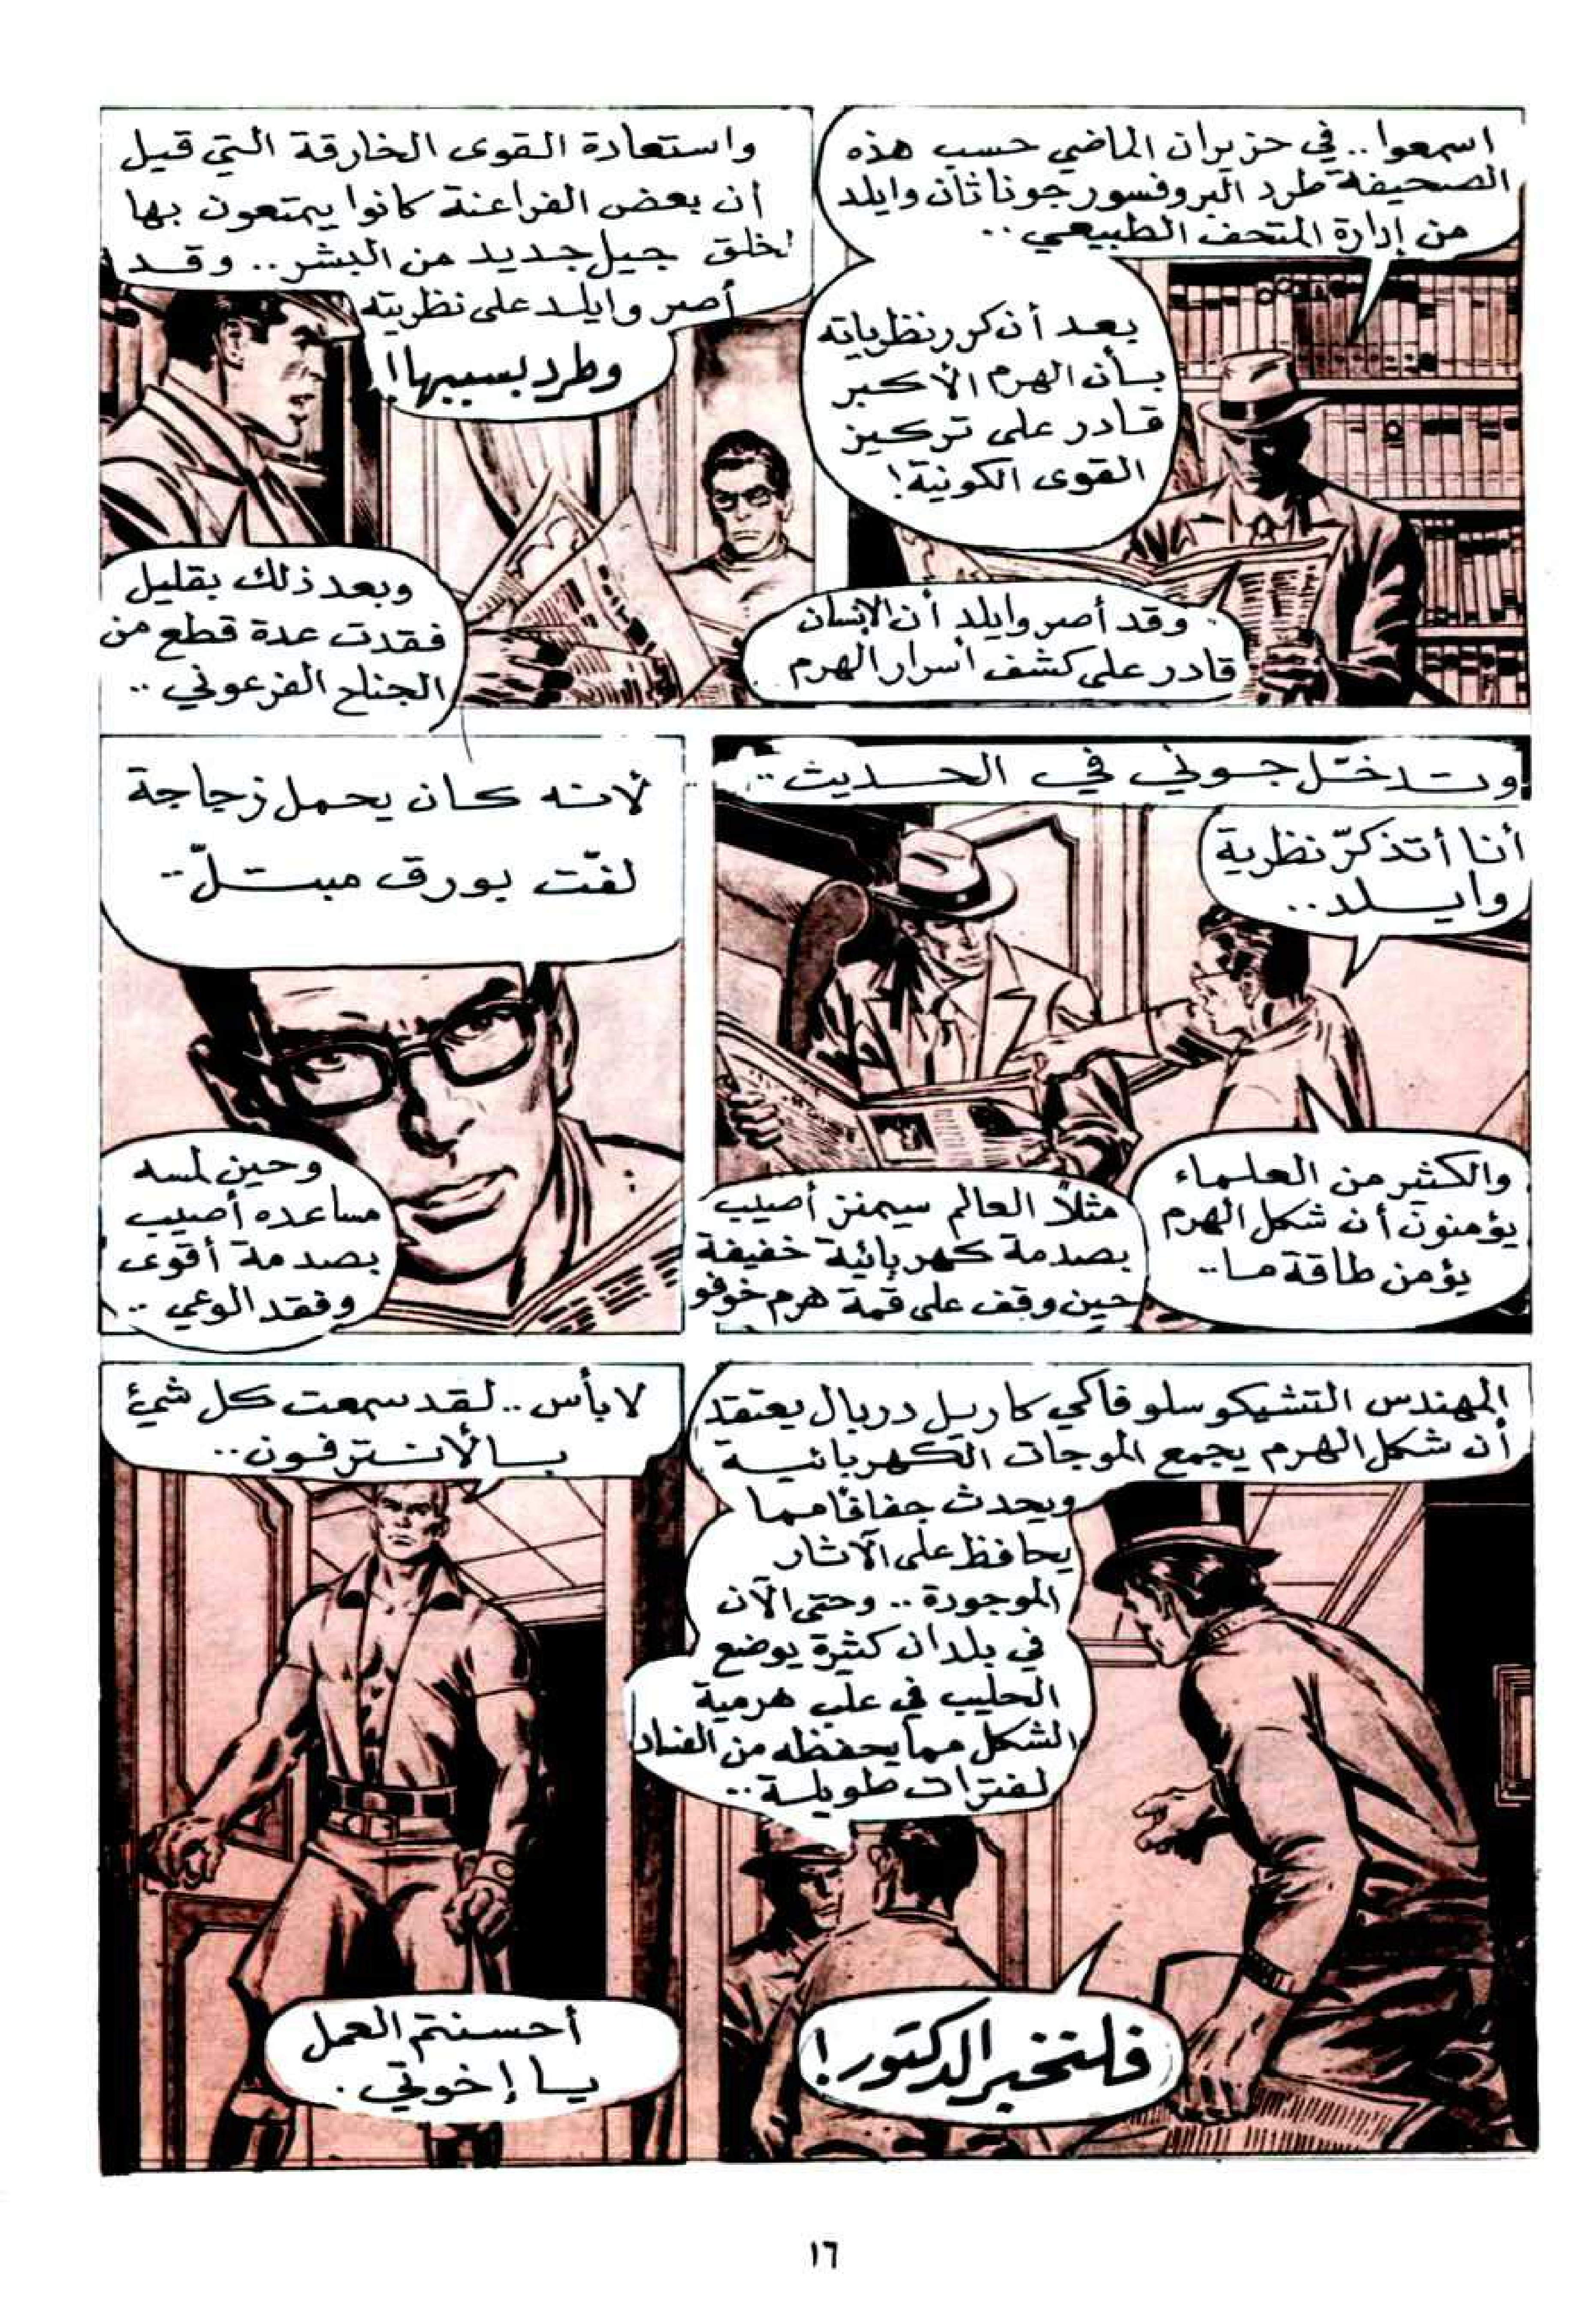 اسمعوا.. في حزيران الماضي حسب هذه
الصحيفة طرد البروفسور جوناثان وايلد
من إدارة المتحف الطبيعي..
بعد أن كرر نظرياته
بأن الهرم الأكبر
قادر على تركيز
القوى الكونية!
وقد أصر وايلد أن الإنسان
قادر على كشف أسرار الهرم
واستعادة القوى الخارقة التي قيل
أن بعض الفراعنة كانوا يتمتعون بها
لخلق جيل جديد من البشر.. وقد
أصر وايلد على نظريته
وطرد بسببها!
وبعد ذلك بقليل
فقدت عدة قطع من
الجناح الفرعوني..
وتدخّل جوني في الحديث..
أنا أتذكّر نظرية
وايلد..
والكثير من العلماء
يؤمنون أن شكل الهرم
يؤمن طاقة ما..
مثلاً العالم سيمنز أصيب
بصدمة كهربائية خفيفة
حين وقف على قمة هرم خوفو
لأنه كان يحمل زجاجة
لفّت بورق مبتلّ..
وحين لمسه
مساعده أصيب
بصدمة أقوى
وفقد الوعي..
المهندس التشيكوسلوفاكي كاريل دربال يعتقد
أن شكل الهرم يجمع الموجات الكهربائية
ويحدث جفافًا مما
يحافظ على الآثار
الموجودة.. وحتى الآن
في بلدان كثيرة يوضع
الحليب في علب هرمية
الشكل مما يحفظه من الفساد
لفترات طويلة..
فلنخبر الدكتور!
لا بأس.. لقد سمعت كل شيئ
بالأنترفون..
أحسنتم العمل
يا إخوتي.
١٦